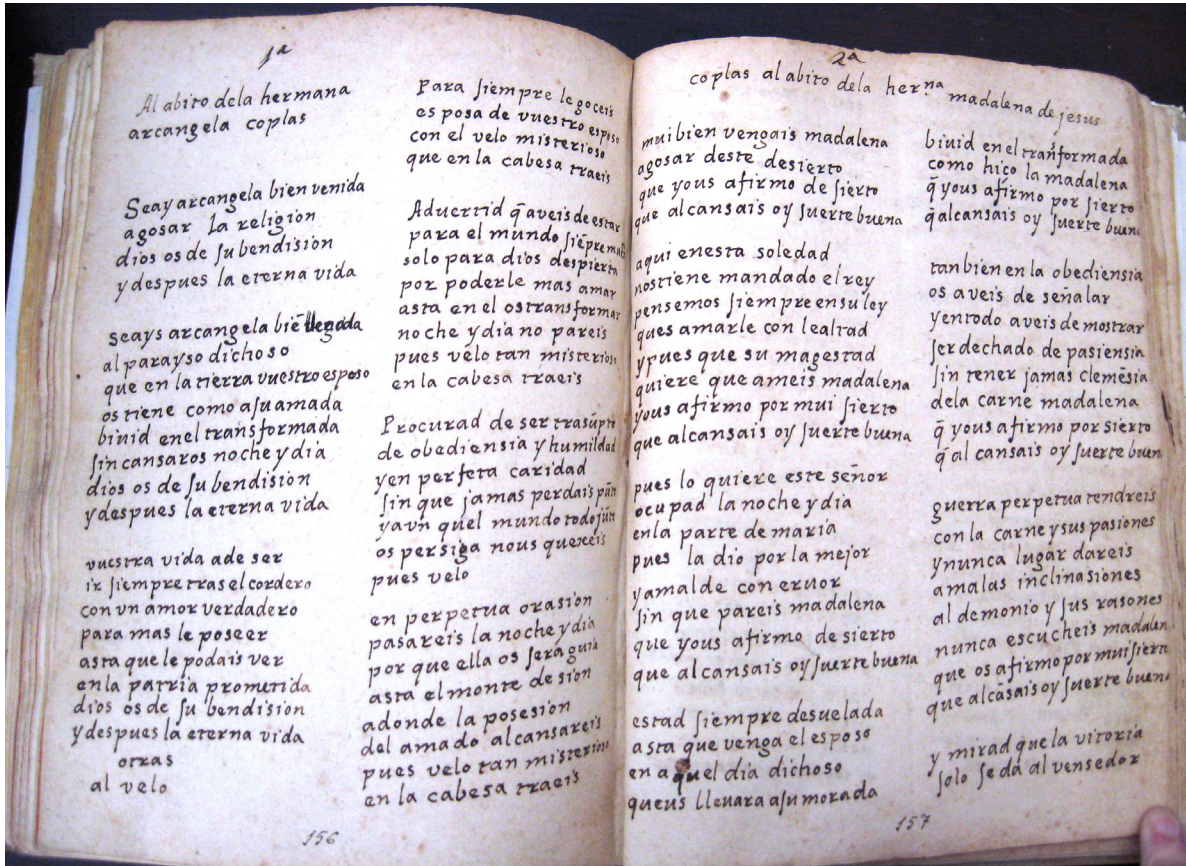 1ª
Al abito dela hermana
arcangela coplas
Seay arcangela bien venida
agosar la religion
dios os de su bendision
y despues la eterna vida
seays arcangela biē llegada
al parayso dichoso
que en la tierra vuestro esposo
os tiene como asu amada
biuid enel transformada
sin cansaros noche y dia
dios os de su bendision
y despues la eterna vida
vuestra vida ade ser
ir siempre tras el cordero
con vn amor verdadero
para mas le poseer
asta que le podais ver
enla patria prometida
dios os de su bendision
y despues la eterna vida
otras
al velo
Para siempre le goceis
es posa de vuestro esposo
con el velo misterioso
que en la cabesa traeis
Aduertid q̄ aveis de estar
para el mundo siēpre
solo para dios despierta
por poderle mas amar
asta en el os transformar
noche y dia no pareis
pues velo tan misterioso
en la cabesa traeis
Procurad de ser trasūpto
de obediensia y humildad
y en perfeta caridad
sin que jamas perdais pūto
y avn quel mundo todo jūto
os persiga nous quexeis
pues velo
en perpetua orasion
pasareis la noche y dia
por que ella os sera guia
asta el monte de sion
adonde la posesion
del amado alcansareis
pues velo tan misterioso
en la cabesa traeis
156
2ª
coplas al abito dela herna madalena de jesus
mui bien vengais madalena
agosar deste desierto
que yous afirmo de sierto
que alcansais oy suerte buena
aqui enesta soledad
nos tiene mandado el rey
pensemos siempre ensu ley
ques amarle con lealtad
y pues que su magestad
quiere que ameis madalena
yous afirmo por mui sierto
que alcansais oy suerte buena
pues lo quiere este señor
ocupad la noche y dia
enla parte de maria
pues la dio por la mejor
y amalde con eruor
sin que pareis madalena
que yous afirmo de sierto
que alcansais oy suerte buena
estad siempre desuelada
asta que venga el esposo
en aquel dia dichoso
queus lleuara asu morada
biuid enel transformada
como hico la madalena
q̄ yous afirmo por sierto
q̄ alcansais oy suerte buena
tanbien en la obediensia
os aveis de señalar
y entodo aveis de mostrar
ser dechado de pasiensia
sin tener jamas clemēsia
dela carne madalena
q̄ yous afirmo por sierto
q̄ al cansais oy suerte buena
guerra perpetua tendreis
con la carne y sus pasiones
y nunca lugar dareis
amalas inclinasiones
al demonio y sus rasones
nunca escucheis madalena
que os afirmo por mui sierto
que alcāsais oy suerte buena
y mirad que la vitoria
solo se da al vensedor
157